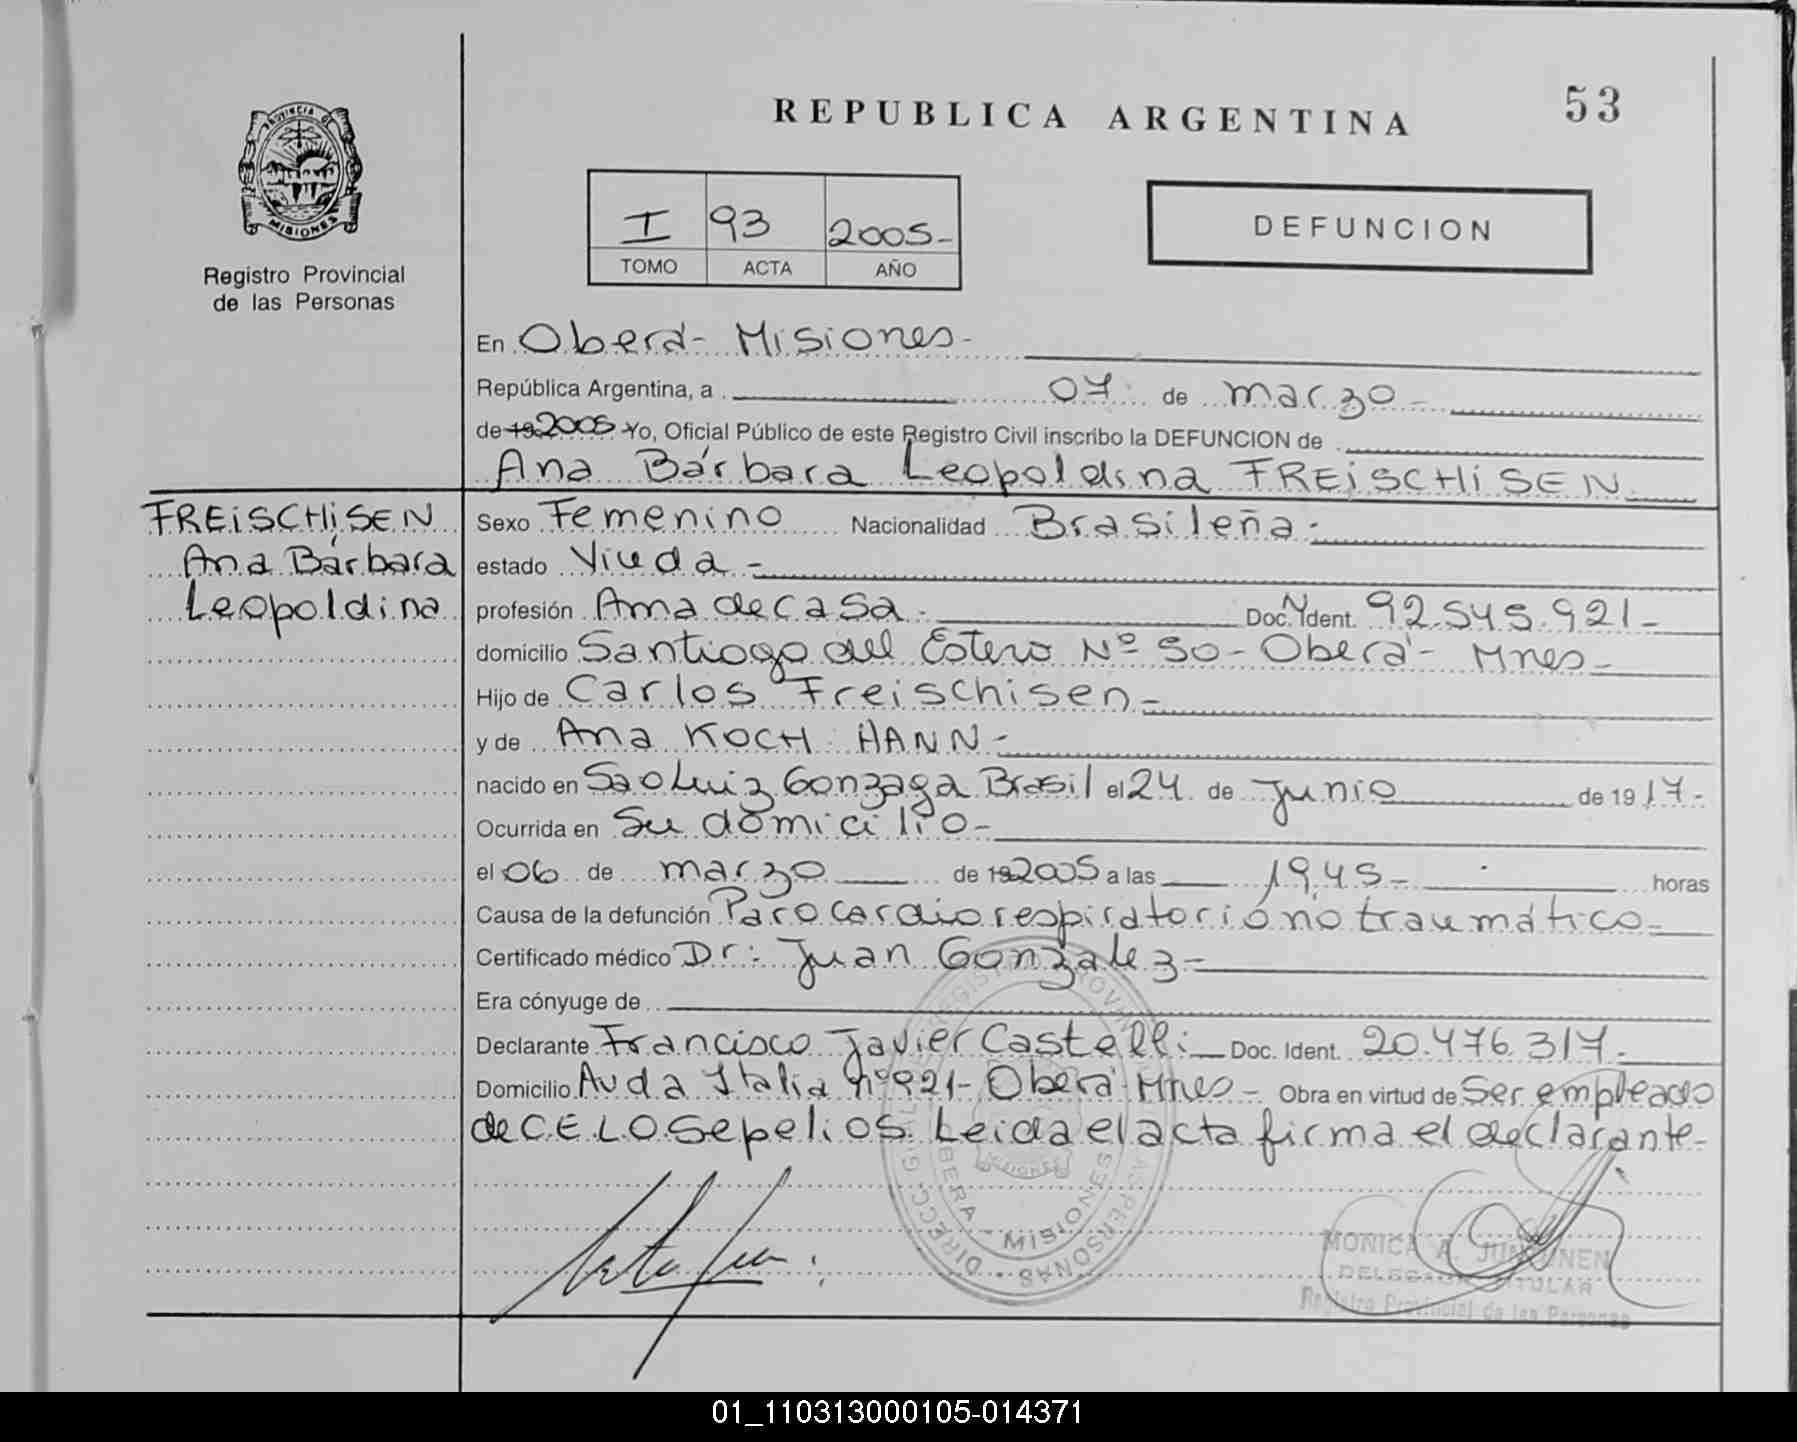 53
REPUBLICA ARGENTINA
PROVINCIA DE
MISIONES
Registro Provincial
de las Personas
I 93 2005-
TOMO ACTA AÑO
DEFUNCION
En Oberá- Misiones-
República Argentina, a 07 de marzo-
de 19 2005 Yo, Oficial Público de este Registro Civil inscribo la DEFUNCION de
Ana Bárbara Leopoldina FREISCHISEN
FREISCHISEN
Ana Bárbara
Leopoldina
Sexo Femenino Nacionalidad Brasileña-
estado Viuda-
profesión Ama de casa- Doc. Ident. 92.545.921-
domicilio Santiago del Estero Nº 50- Oberá- Mnes-
Hijo de Carlos Freischisen-
y de Ana KOCH HANN-
nacido en Sao Luiz Gonzaga Brasil el 24 de Junio de 19 17-
Ocurrida en Su domicilio-
el 06 de marzo de 19 2005 a las 19,45- horas
Causa de la defunción Paro cardio respiratorio no traumático-
Certificado médico Dr: Juan Gonzalez-
Era cónyuge de
Declarante Francisco Javier Castelli- Doc. Ident. 20.476.317-
Domicilio Avda Italia nº 921- Oberá- Mnes- Obra en virtud de Ser empleado
de C.E.L.O Sepelios. Leida el acta firma el declarante-
MISIONES
MONICA A.
DELEGADA TITULAR
Registro Provincial de las Personas
01_110313000105-014371